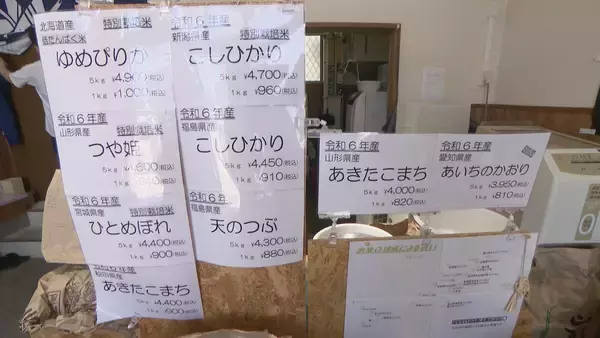 北海道産 特別栽培米
低たんぱく米
ゆめぴりか
5kg ¥4,900(税込)
1kg ¥1,000(税込)
令和6年産
新潟県産 特別栽培米
こしひかり
5kg ¥4,700(税込)
1kg ¥960(税込)
令和6年産
山形県産 特別栽培米
つや姫
5kg ¥4,600(税込)
1kg (税込)
令和6年産
福島県産
こしひかり
5kg ¥4,450(税込)
1kg ¥910(税込)
令和6年産
宮城県産 特別栽培米
ひとめぼれ
5kg ¥4,400(税込)
1kg ¥900(税込)
令和6年産
福島県産
天のつぶ
5kg ¥4,300(税込)
1kg ¥880(税込)
令和6年産
秋田県産
あきたこまち
5kg ¥4,400(税込)
1kg ¥900(税込)
令和6年産
山形県産
あきたこまち
5kg ¥4,000(税込)
1kg ¥820(税込)
令和6年産
愛知県産
あいちのかおり
5kg ¥3,950(税込)
1kg ¥810(税込)